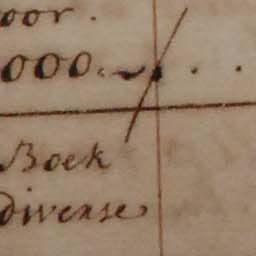 oor.
000. ~ . .
Boek
diverse